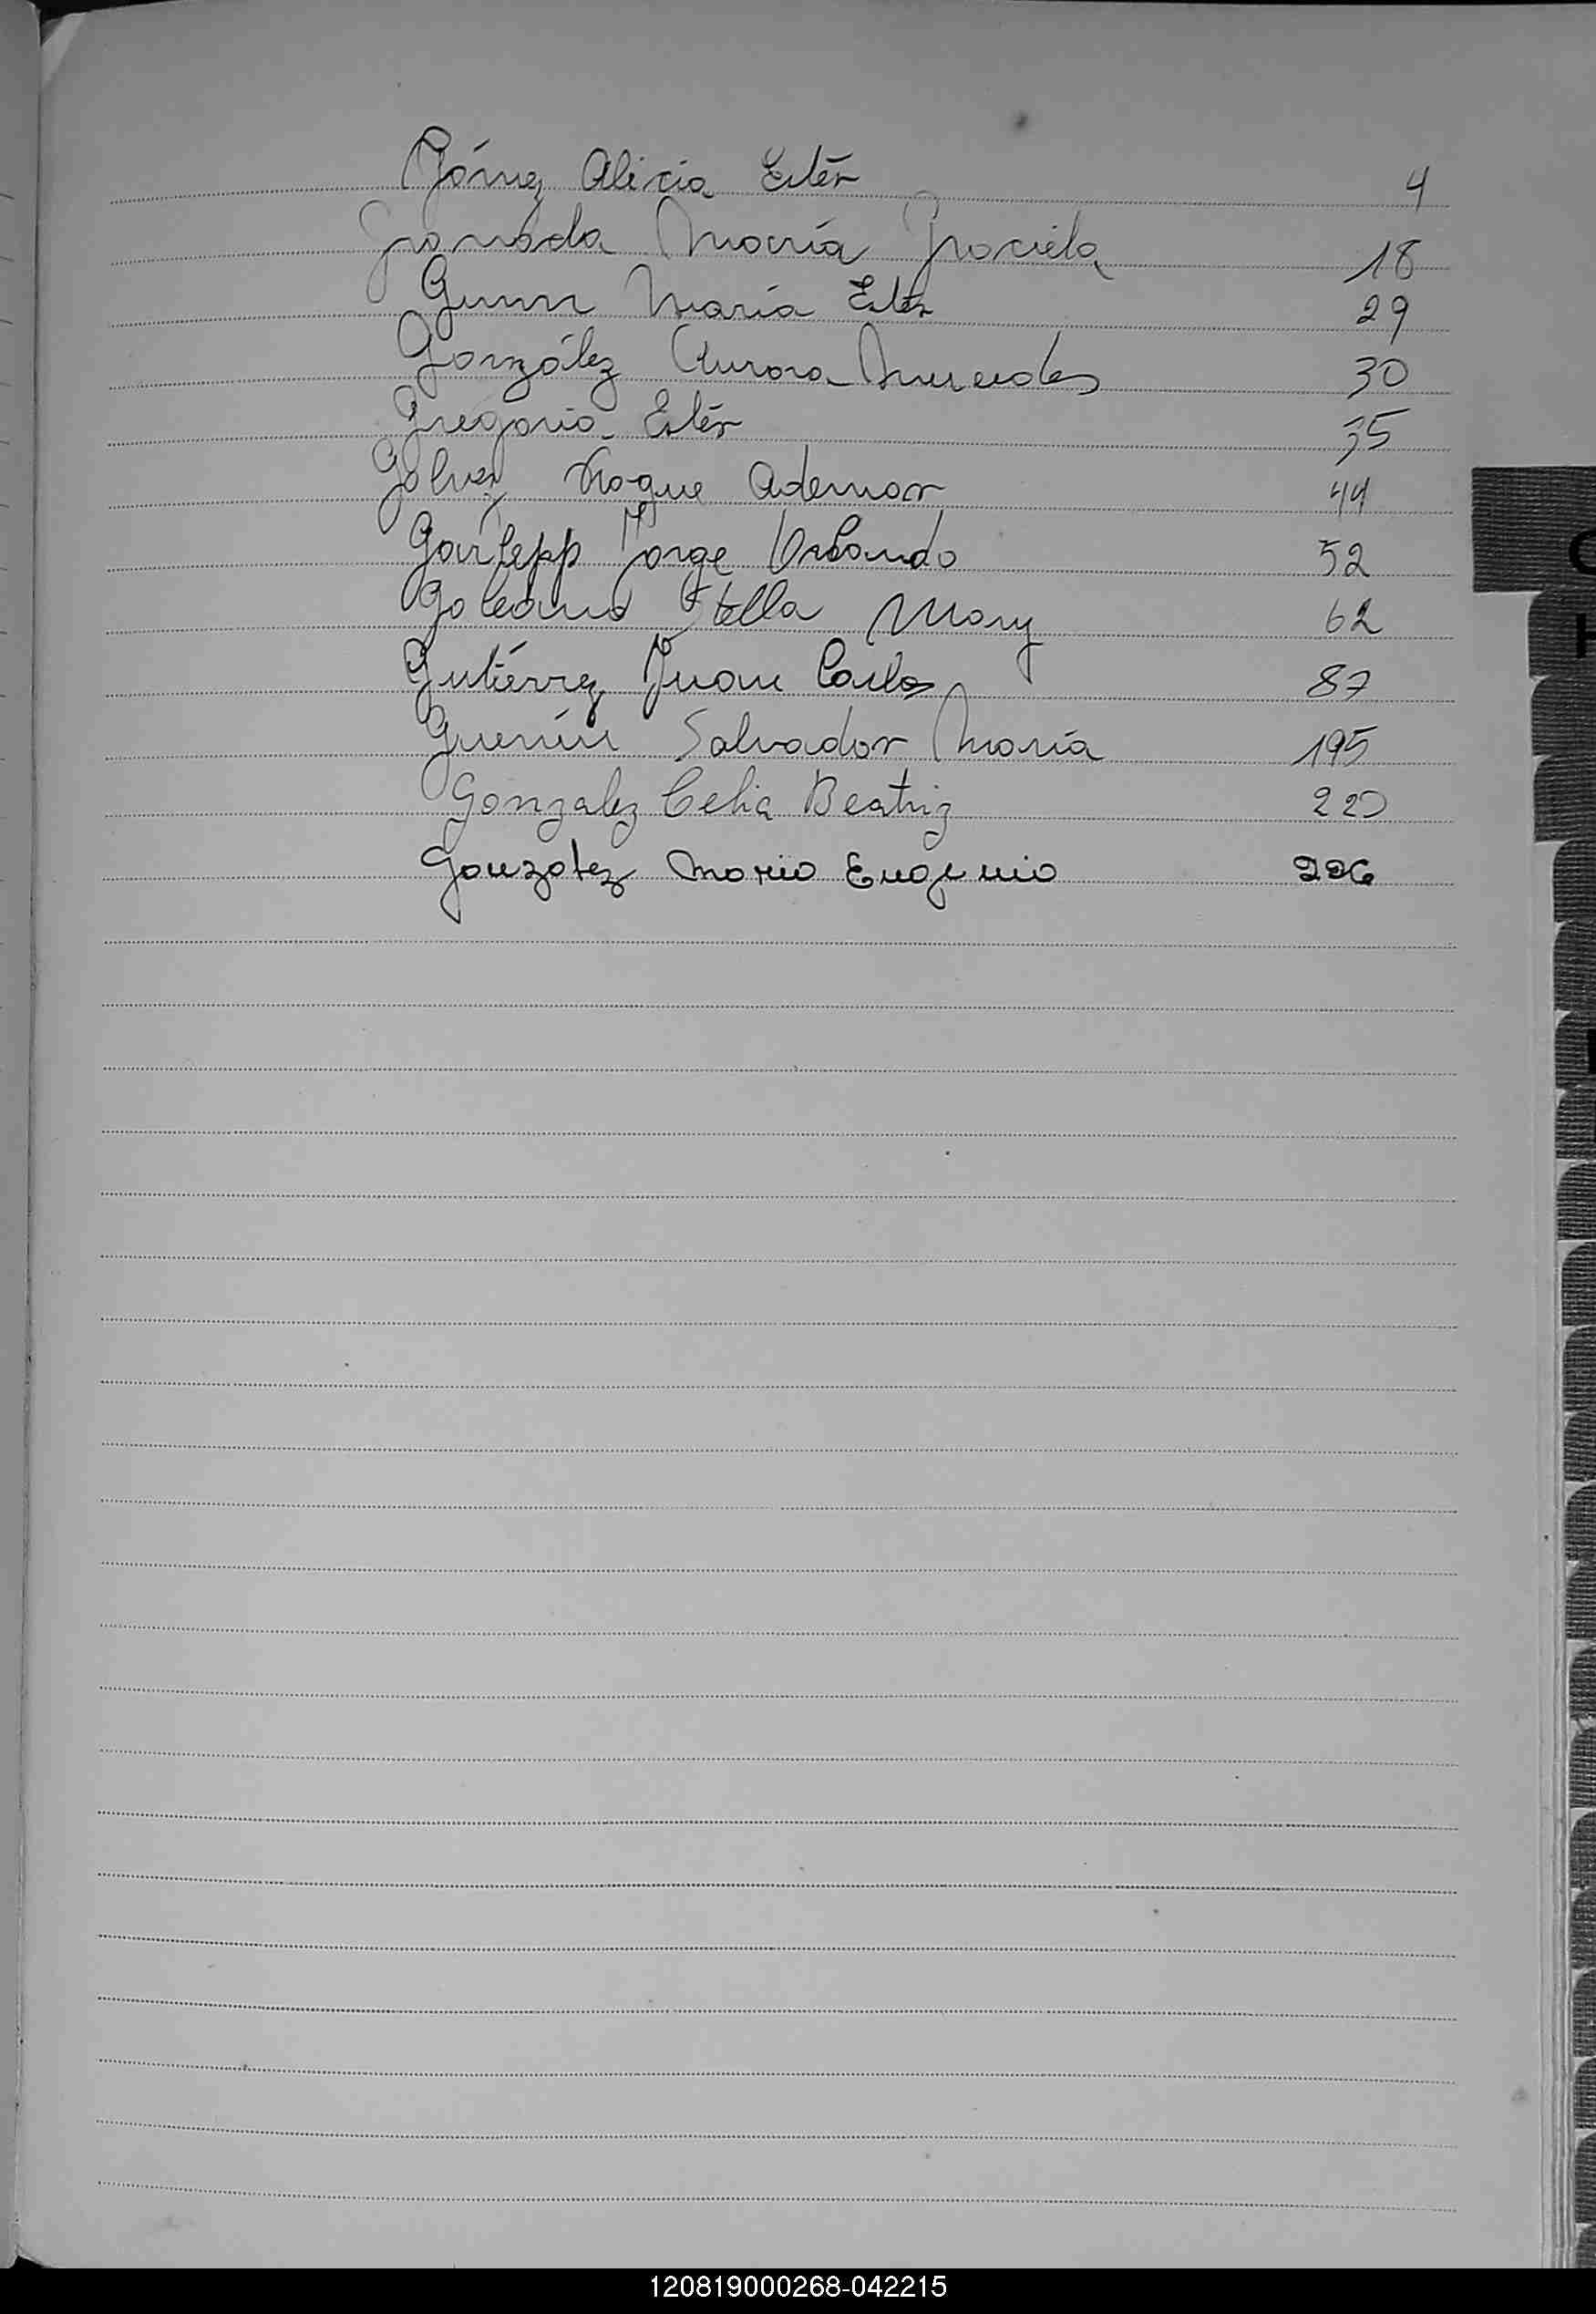 Gómez Alicia Estér 4
Granada María Graciela 18
Gunn María Estér 29
González Aurora Mercedes 30
Gregorio Estér 35
Galvez Roque Ademar 44
Garlepp Jorge Orlando 52
Galeano Stella Mary 62
Gutiérrez Juan Carlos 87
Guenín Salvador María 195
Gonzalez Celia Beatriz 220
Gonzalez Mario Eugenio 226
G
H
120819000268-042215